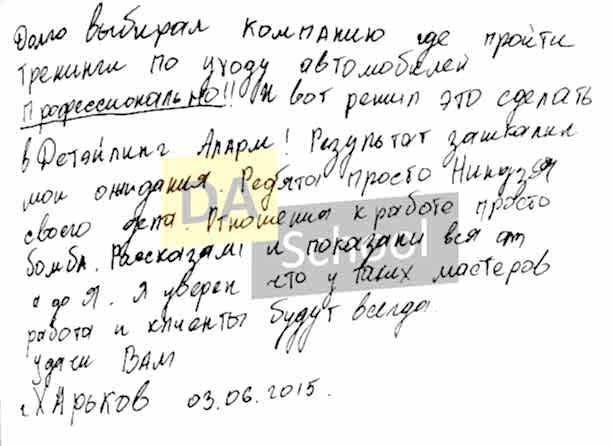 Долго выбирал компанию где пройти
тренинги по уходу автомобилей
Профессионально!! И вот решил это сделать
в Детэйлинг Аларм! Результат зашкалил
мои ожидания. Ребята просто Ниндзя
своего дела. Отношения к работе просто
бомба. Рассказали и показали вся от
а до Я. Я уверен что у таких мастеров
работа и клиенты будут всегда.
удачи Вам
г. Харьков 03.06.2015.
DA
School